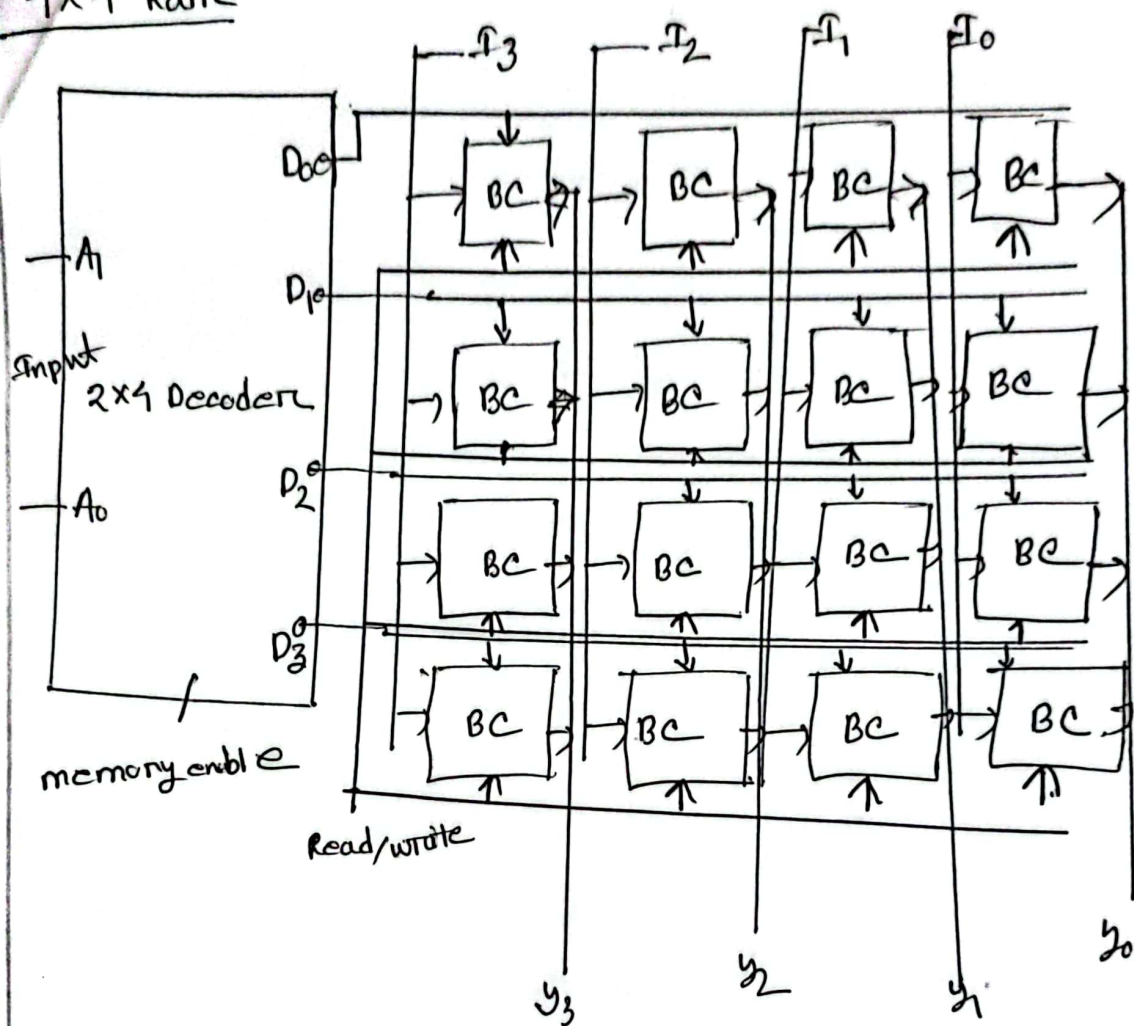 4×4 RAM
I3 I2 I1 I0
D0 BC BC BC BC
A1
D1
Input
2×4 Decoder BC BC BC BC
D2
A0
BC BC BC BC
D3
BC BC BC BC
memory enble
Read/write
y3 y2 y1 y0